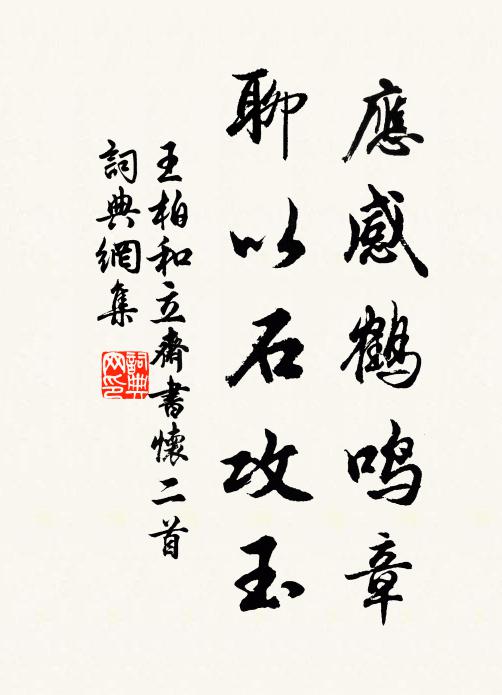 應感鶴鸣章
聊以石攻玉
王柏和立齋書懷二首
詞典網集
詞典网印